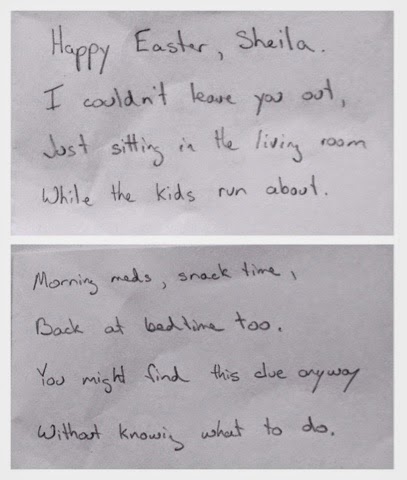 Happy Easter, Sheila.
I couldn't leave you out,
Just sitting in the living room
While the kids run about.
Morning meds, snack time,
Back at bedtime too.
You might find this clue anyway
Without knowing what to do.